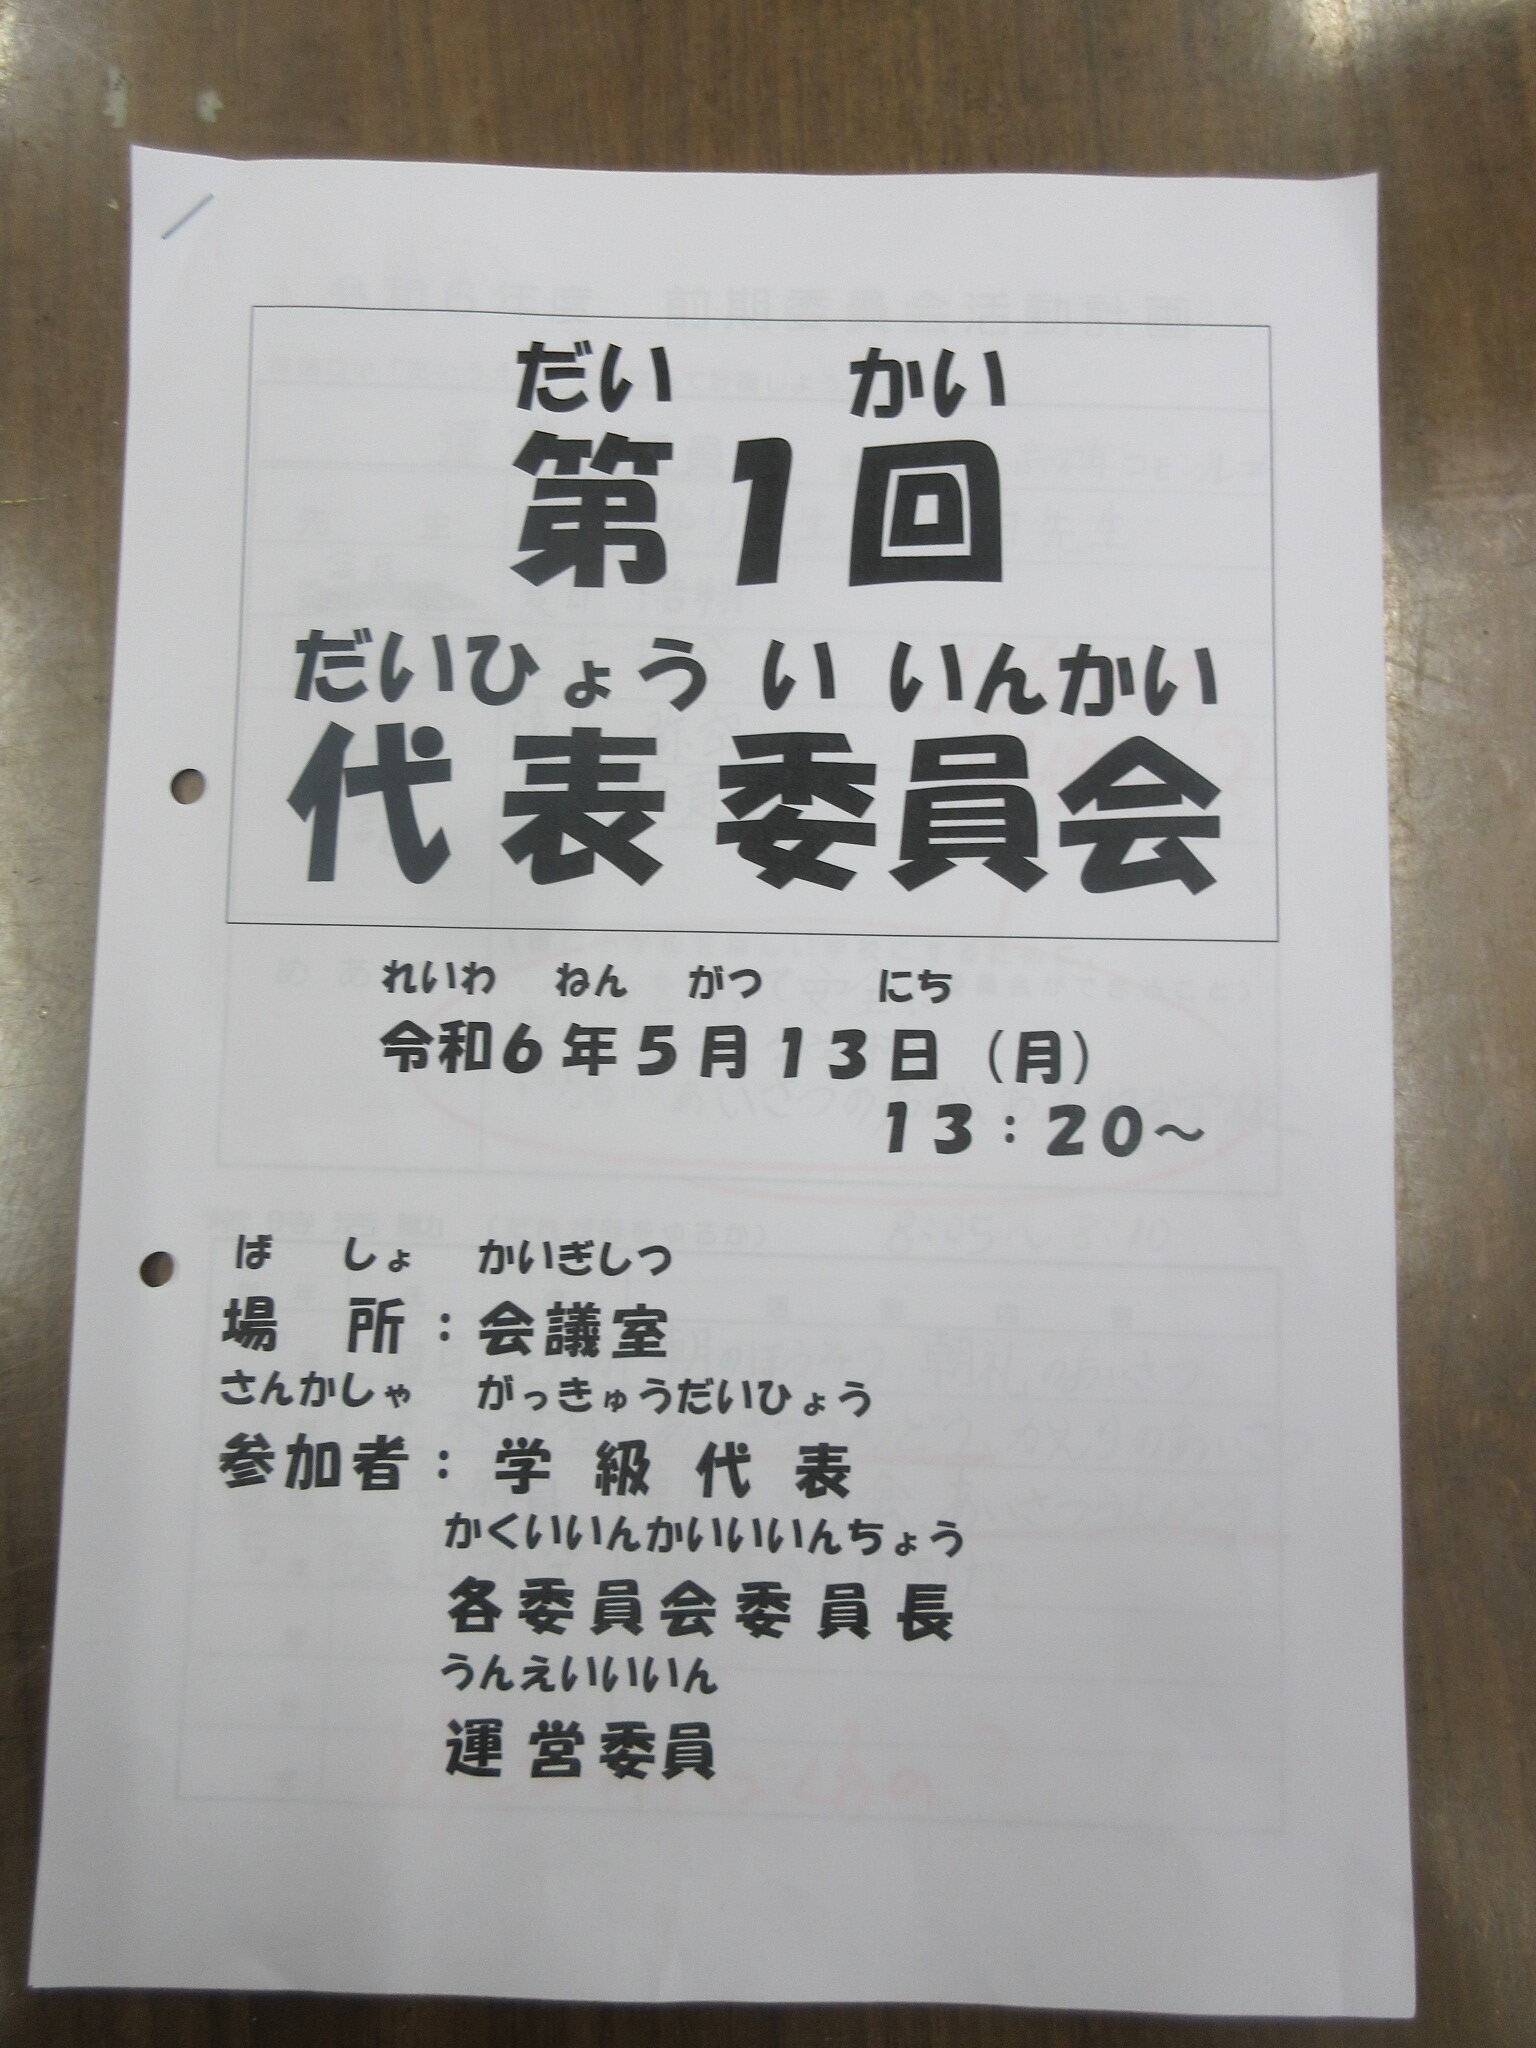 だい かい
第1回
だいひょう い いんかい
代表委員会
れいわ ねん がつ にち
令和6年5月13日（月）
13：20～
ば しょ かいぎしつ
場 所：会議室
さんかしゃ がっきゅうだいひょう
参加者：学級代表
かくいいんかいいいんちょう
各委員会委員長
うんえいいいん
運営委員